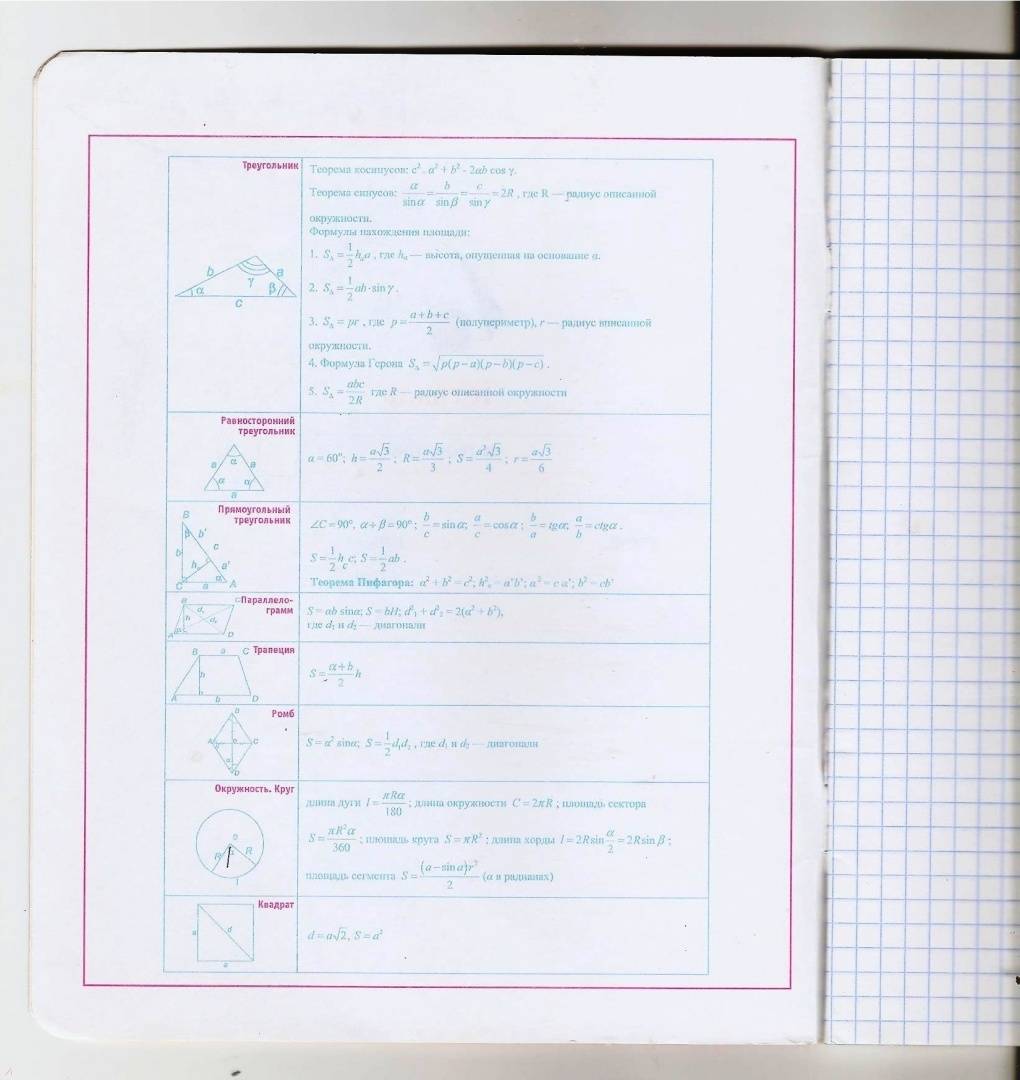 Треугольник
Теорема косинусов: c². a² + b² - 2ab cos γ.
Теорема синусов: a/sin α = b/sin β = c/sin γ = 2R , где R — радиус описанной
окружности.
Формулы нахождения площади:
1. S△ = 1/2 hₐa , где hₐ — высота, опущенная на основание a.
2. S△ = 1/2 ab·sin γ .
3. S△ = pr , где p = a+b+c/2 (полупериметр), r — радиус вписанной
окружности.
4. Формула Герона S△ = √p(p−a)(p−b)(p−c) .
5. S△ = abc/2R где R — радиус описанной окружности
b a γ α β c
Равносторонний
треугольник
a = 60°; h = a√3/2 ; R = a√3/3 ; S = a²√3/4 ; r = a√3/6
a α a α α a
Прямоугольный
треугольник
∠C = 90°, α + β = 90° ; b/c = sin α; a/c = cos α ; b/a = tgα; a/b = ctgα .
S = 1/2 h c c; S = 1/2 ab .
Теорема Пифагора: a² + b² = c²; h²c = a'b'; a² = c a'; b² = cb'
B β b' b c h a' α C a A
Параллело-
грамм
S = ab sinα; S = bH; d²₁ + d²₂ = 2(a² + b²),
где d₁ и d₂ — диагонали
B C d₁ h d₂ A D
Трапеция
S = a+b/2 h
B a C h A b D
Ромб
S = a² sinα; S = 1/2 d₁d₂ , где d₁ и d₂ — диагонали
B A C D
Окружность. Круг
длина дуги l = πRα/180 ; длина окружности C = 2πR ; площадь сектора
S = πR²α/360 ; площадь круга S = πR² ; длина хорды l = 2R sin α/2 = 2R sin β ;
площадь сегмента S = (a−sin a)r²/2 (α в радианах)
R R l
Квадрат
d = a√2, S = a²
a d a